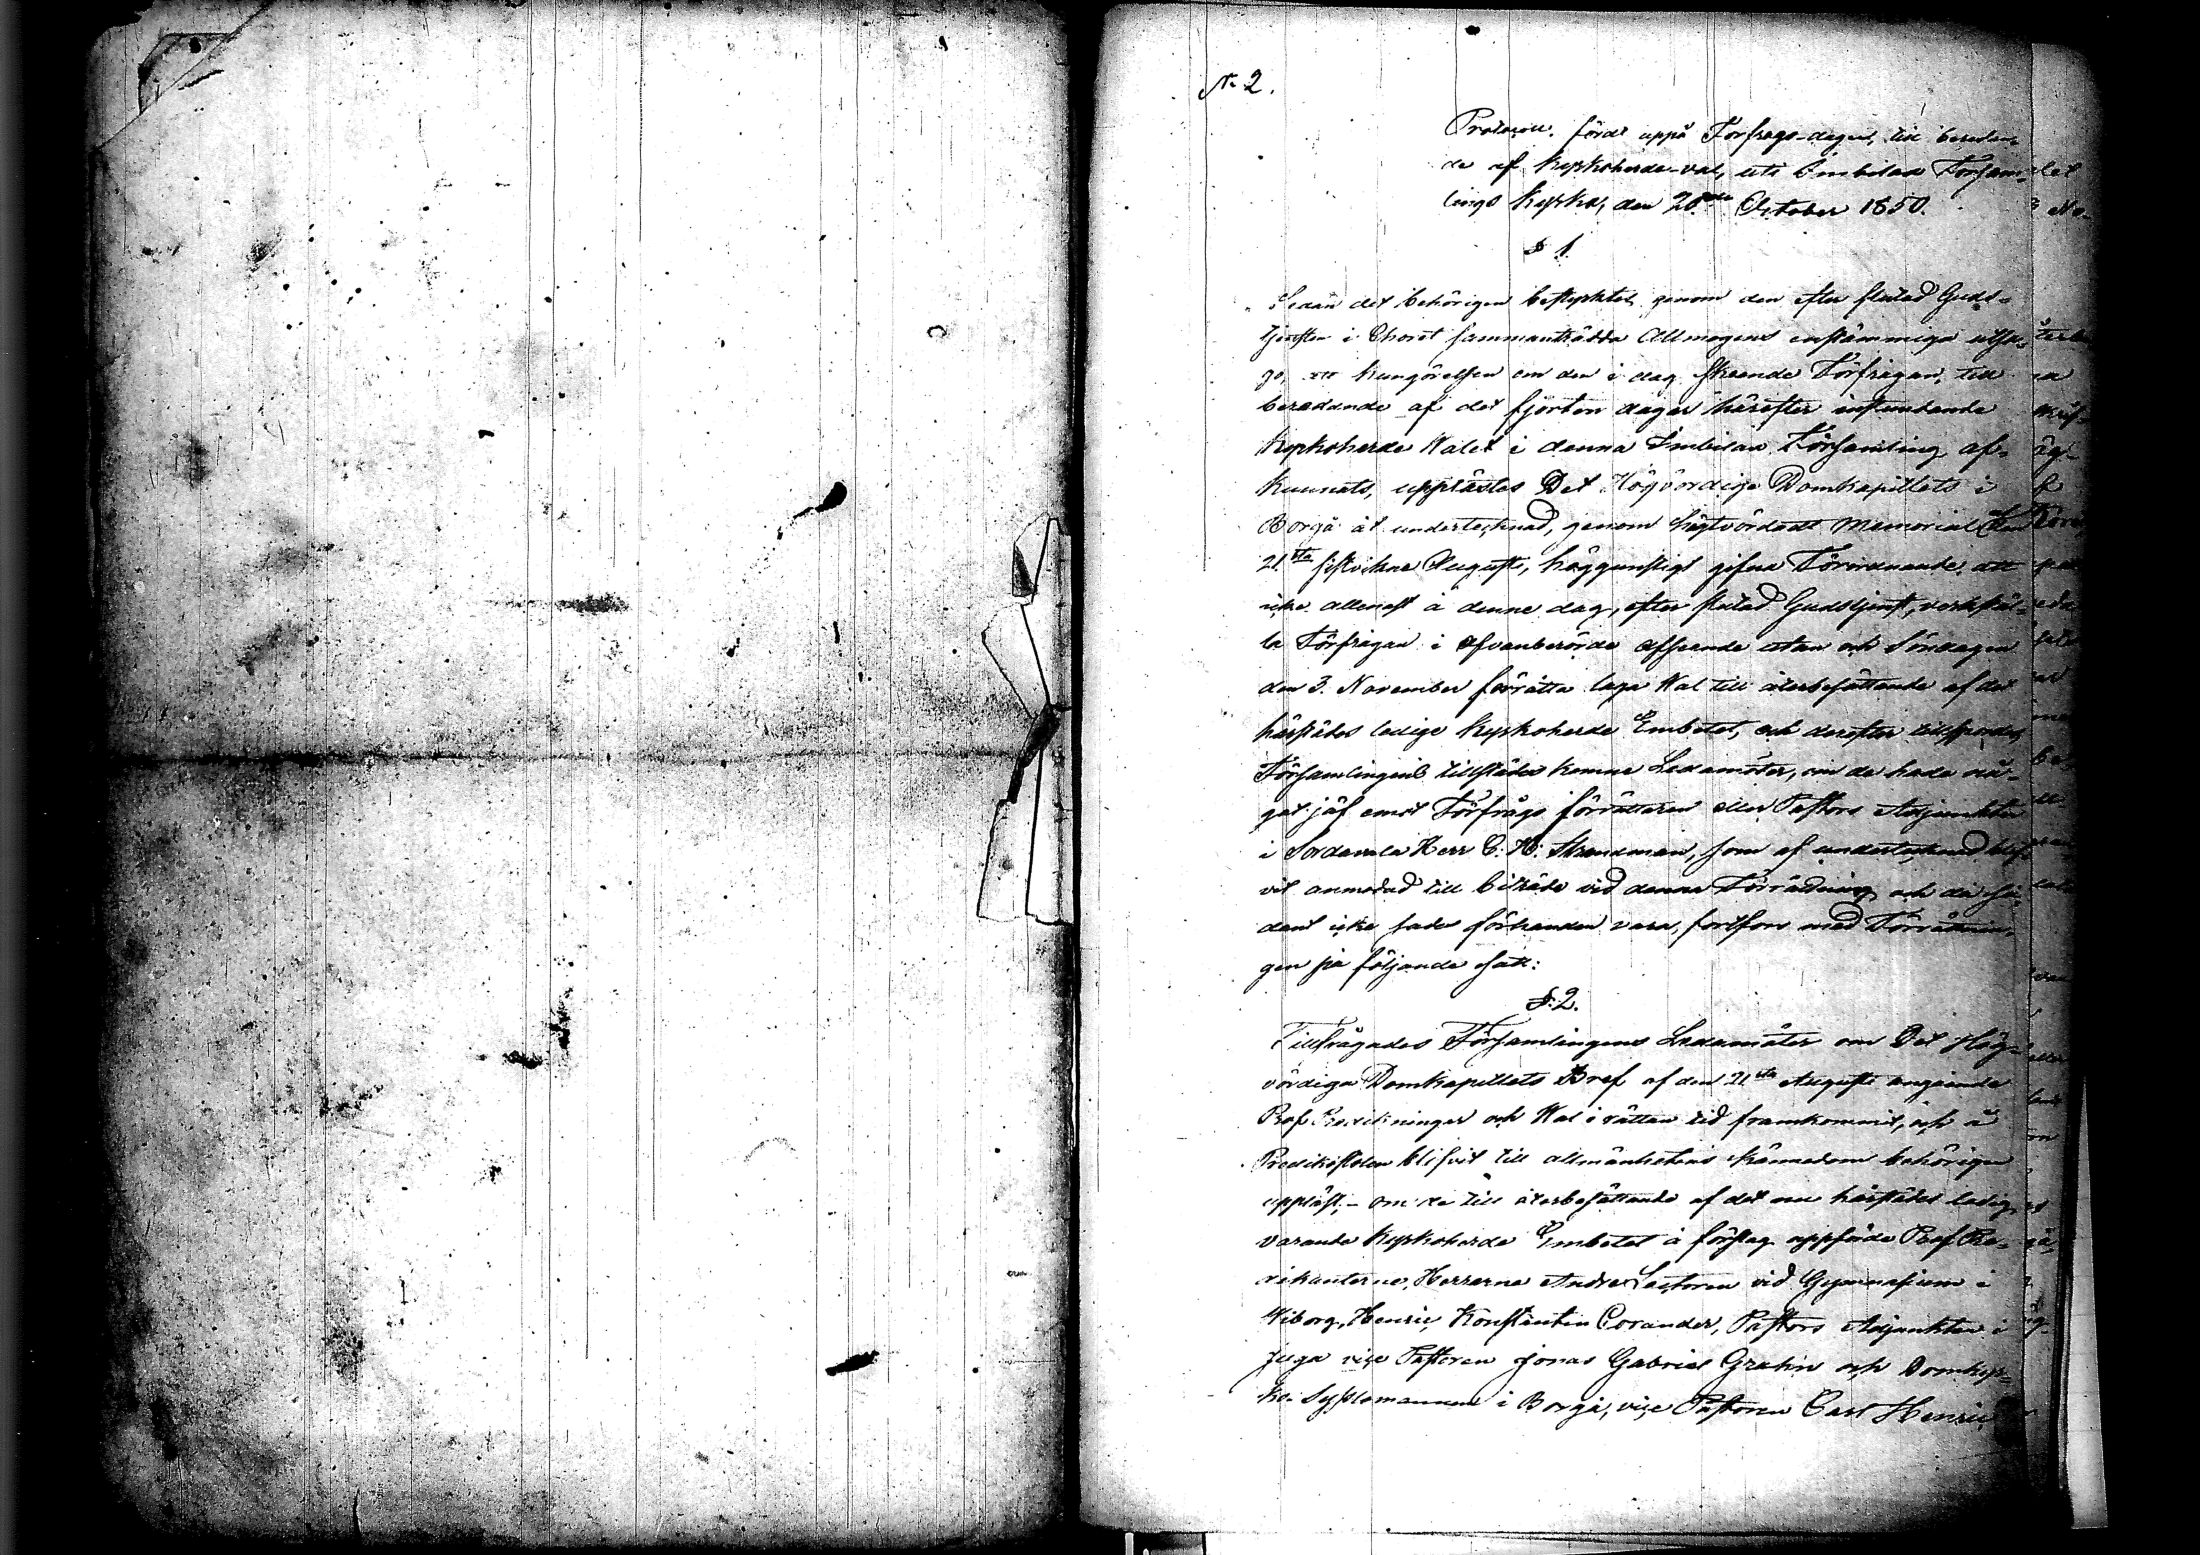 N:o 2.
Protocoll, fördt uppå Förfrågs-dagen, till beredan-
de af Kyrkoherde-val, uti Imbilax Församl-
lings Kyrka, den 20:de October 1850.
§ 1
Sedan det behörigen bestyrktes genom den efter slutad Guds-
tjensten i Choret sammanträdda Allmogens enstämmiga utsa-
go, att kungörelsen om den i dag skeende Förfrågan, till
beredande af det fjorton dagar härefter instundande
Kyrkoherde Walet i denna Imbilax Församling af-
kunnats, upplästes Det Högvördige Domkapitlets i
Borgå åt undertecknad, genom högtvördadt Memorial den
21:sta sistvikne Augusti, höggunstigt gifna Förordnande att
icke allenast å denne dag, efter slutad Gudstjenst, verkstäl-
la Förfrågan i ofvanberörde afseende utan och Söndagen
den 3. November förrätta laga Wal till återbesättande af det
härstädes ledige Kyrkoherde Embetet, och derefter tillfrågades
Församlingens tillstädes komne Ledamöter, om de hade nå-
got jäf emot Förfrågs förrättaren eller Pastors Adjunkten
i Sordavala Herr C. H. Strandman, som af undertecknad blif-
vit anmodad till biträde vid denna Förrättning och då så-
dant icke sades förhanden vara, fortfors med Förrättnin-
gen på följande sätt:
§ 2.
Tillfrågades Församlingens Ledamöter om Det Hög-
vördiga Domkapitlets Bref af den 21:sta Augusti angående
Prof Predikningar och Wal i rättan tid framkommit, och å
Predikstolen blifvit till allmänhetens kännedom behörigen
uppläst, - om de till återbesättande af det nu härstädes ledig
varande Kyrkoherde Embetet å förslag uppförde Prof Pre-
dikanterne, Herrarne Andre Lectoren vid Gymnasium i
Wiborg, Henric Konstantin Corander, Pastors Adjunkten i
Juga vice Pastoren Jonas Gabriel Grahn och Domkyr-
ko Sysslomannen i Borgå, vice Pastoren Carl Henric